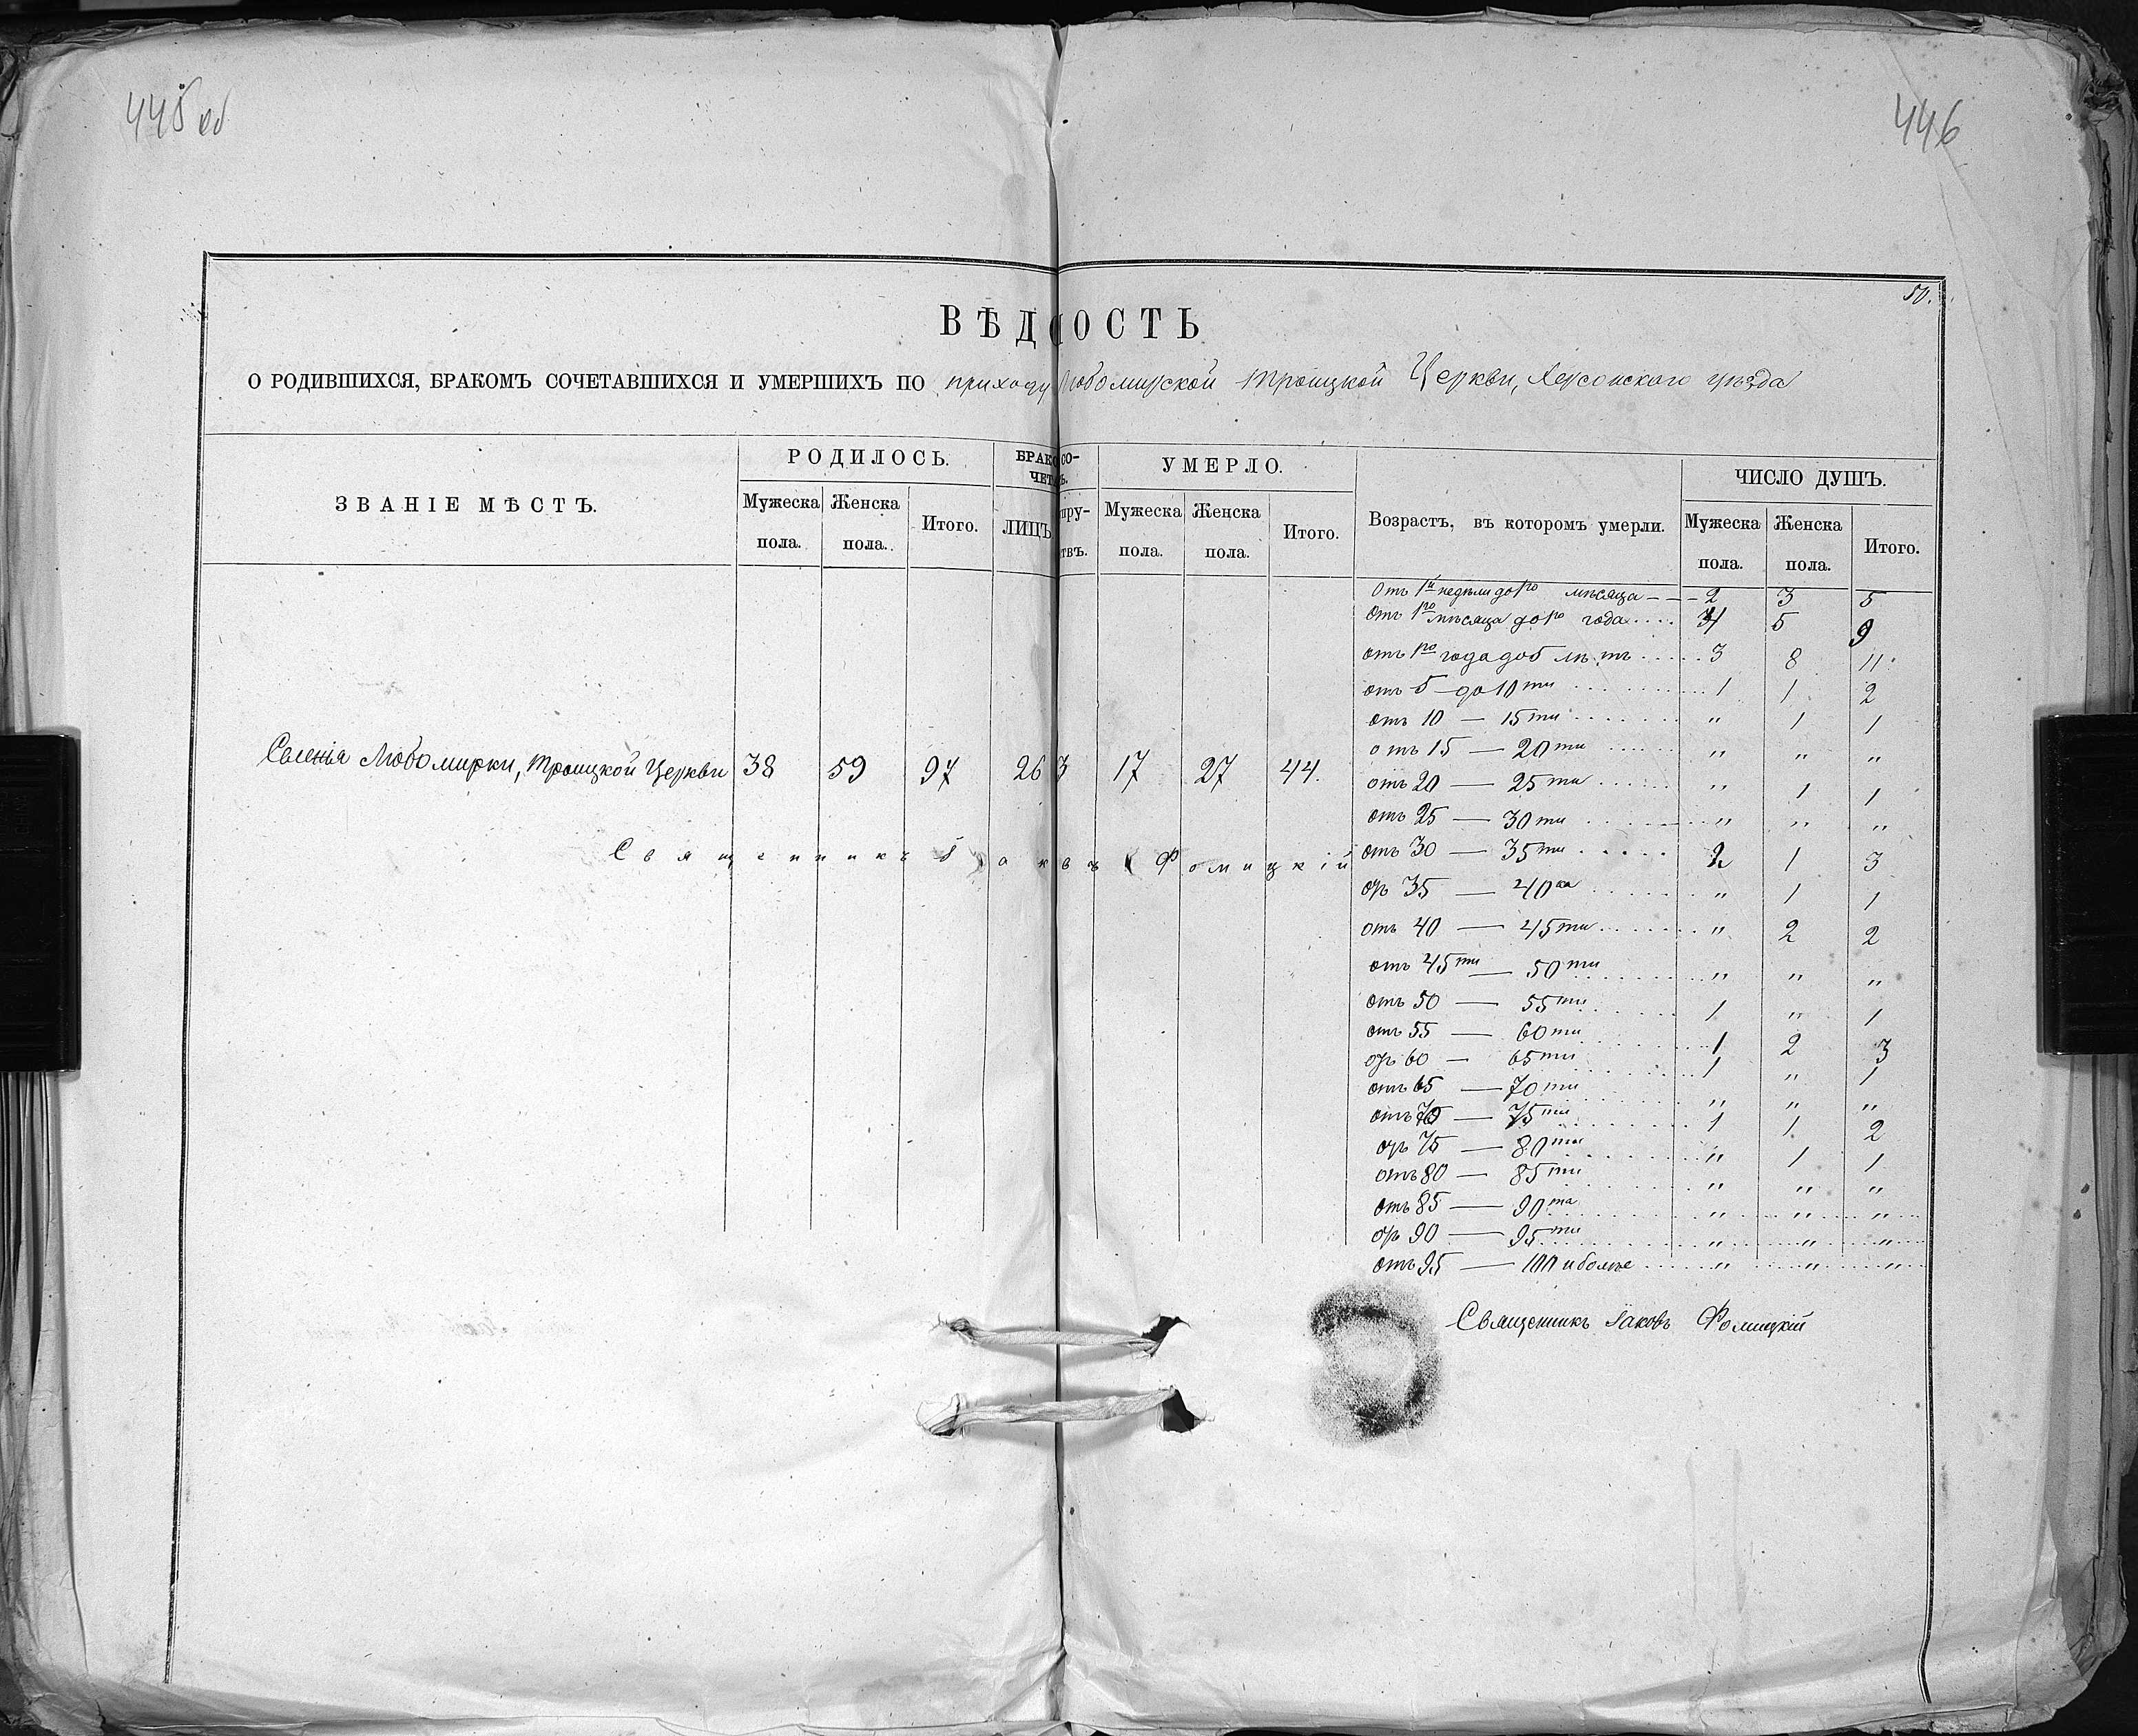 445 об
446
50.
ВѢДОСТЬ
О РОДИВШИХСЯ, БРАКОМЪ СОЧЕТАВШИХСЯ И УМЕРШИХЪ ПО приходу Любомирской Троицкой Церкви, Херсонскаго уѣзда
ЗВАНІЕ МѢСТЪ.
РОДИЛОСЬ.
Мужеска пола.
Женска пола.
Итого.
БРАКО СО-
ЧЕТ Ъ.
ЛИЦЪ
пру-
твъ.
УМЕРЛО.
Мужеска пола.
Женска пола.
Итого.
Возрастъ, въ которомъ умерли.
ЧИСЛО ДУШЪ.
Мужеска пола.
Женска пола.
Итого.
Селенія Любомирки, Троицкой Церкви 38 59 97 26 3 17 27 44.
Священникъ Іаковъ Фомицкій
Отъ 1й недѣли до 1го мѣсяца - - - 2 3 5
Отъ 1го мѣсяца до 1го года .... 4 5 9
отъ 1го года до 5 лѣтъ ..... 3 8 11
отъ 5 — до 10ти ......... 1 1 2
отъ 10 — 15ти ....... " 1 1
отъ 15 — 20ти ...... " " "
отъ 20 — 25ти ...... " 1 1
отъ 25 — 30ти ....... " " "
отъ 30 — 35ти ..... 2 1 3
отъ 35 — 40ка ...... " 1 1
отъ 40 — 45ти ....... " 2 2
отъ 45ти — 50ти ....... " " "
отъ 50 — 55ти ...... 1 " 1
отъ 55 — 60ти ....... 1 2 3
отъ 60 — 65ти ....... 1 " 1
отъ 65 — 70ти ....... " " "
отъ 70 — 75ти ....... 1 1 2
отъ 75 — 80ти ....... " 1 1
отъ 80 — 85ти ....... " " "
отъ 85 — 90та ....... " " "
отъ 90 — 95ти ....... " " "
отъ 95 — 100 и болѣе ....... " " "
Священникъ Іаковъ Фомицкій